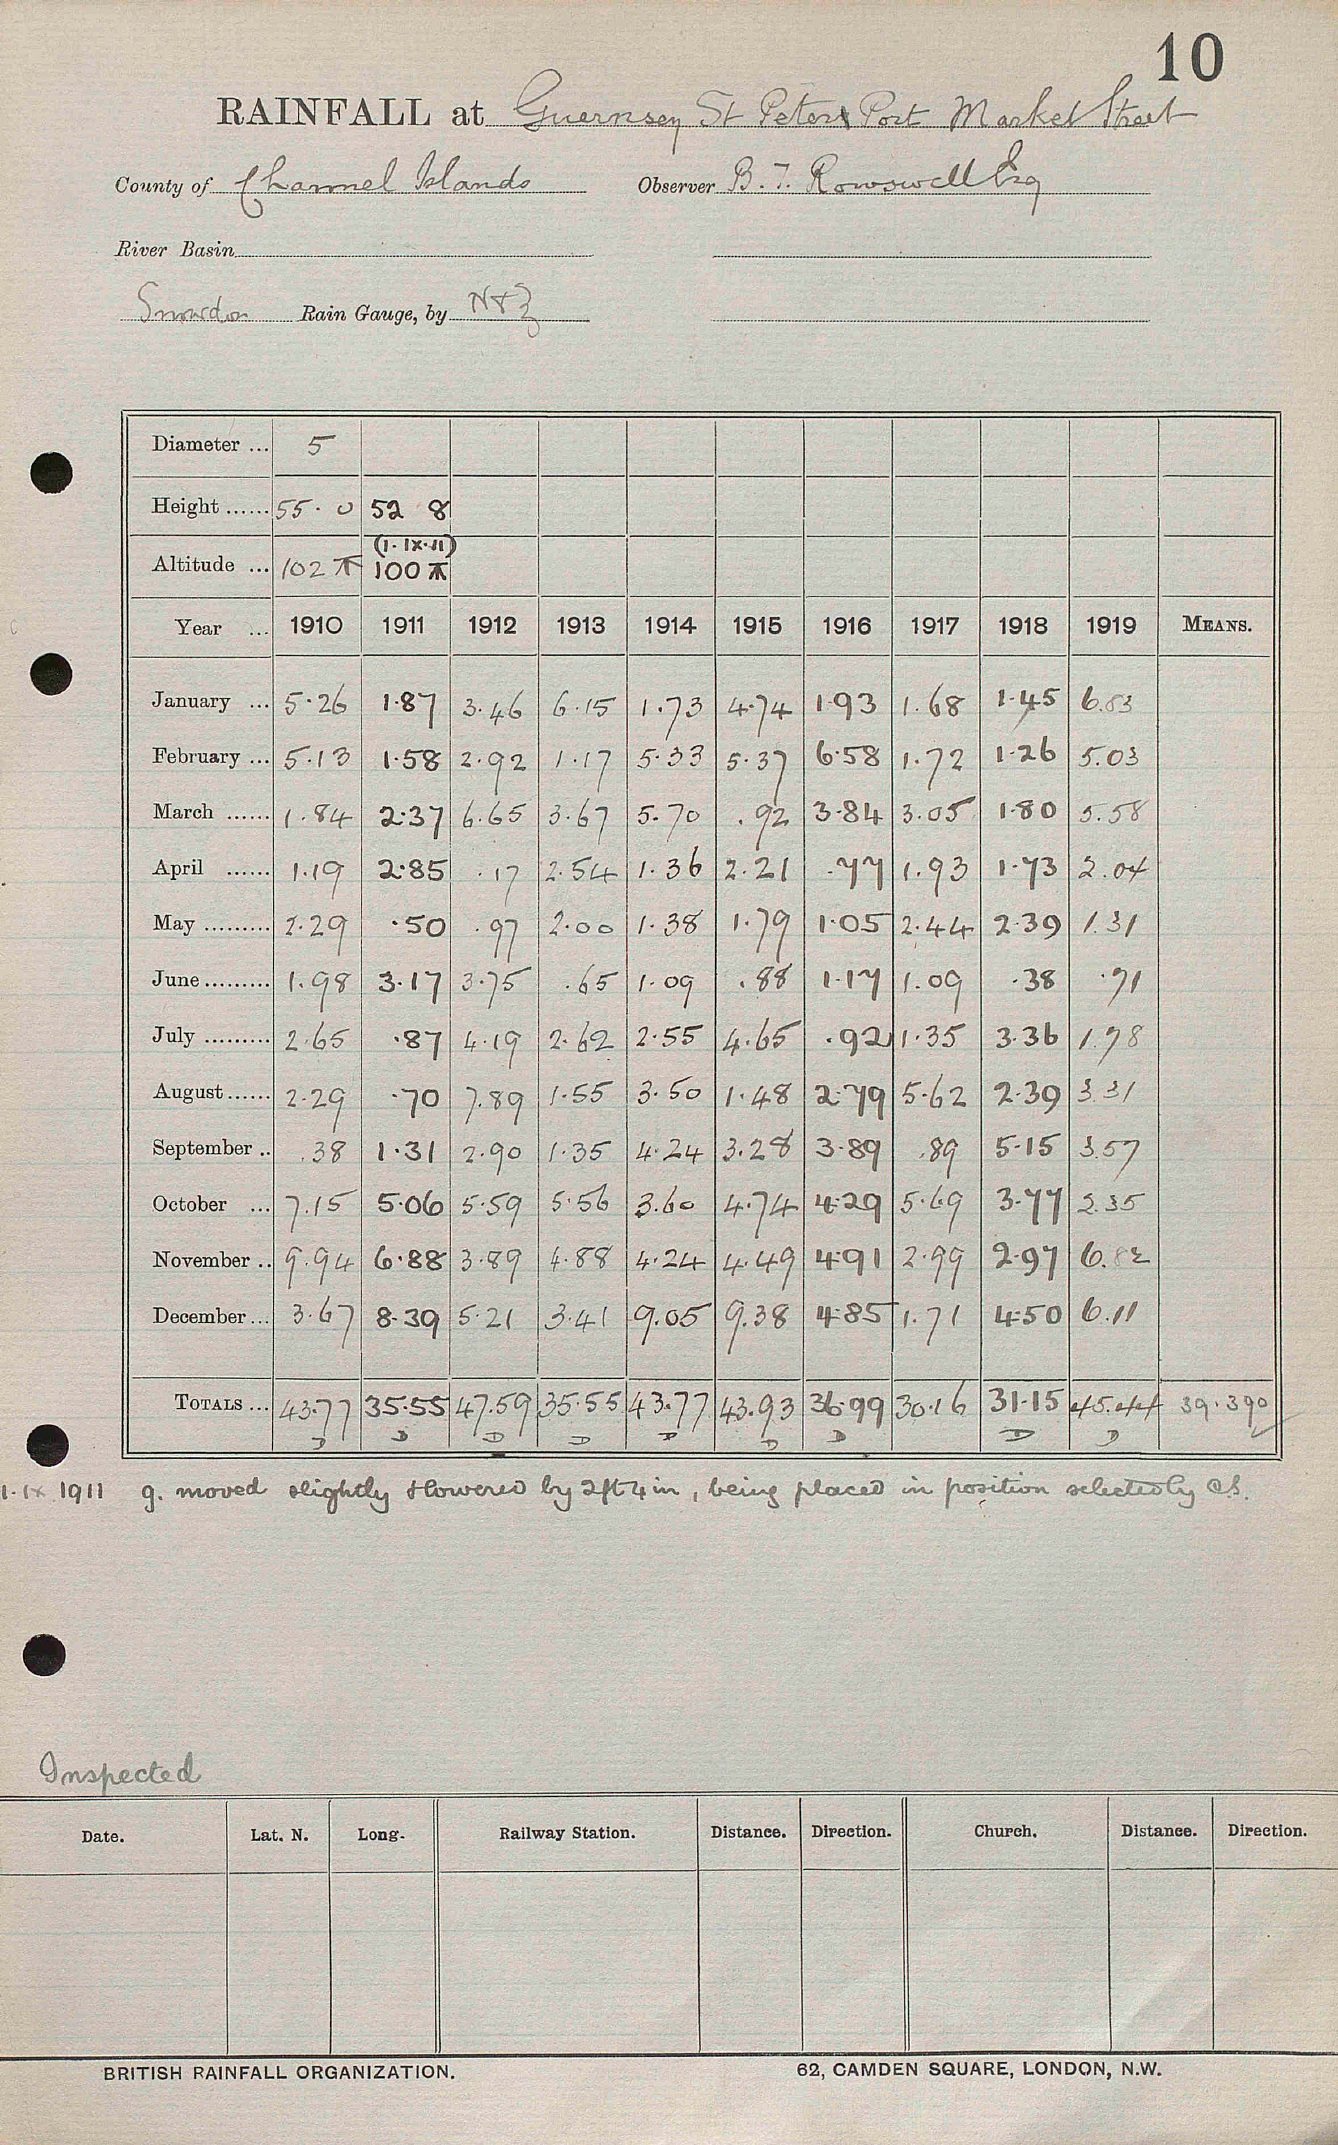 10
RAINFALL at Guernsey St Peters Port Market Street
County of Channel Islands Observer B. T. Rowswell Esq
River Basin
Snowdon Rain Gauge, by N & Z
Diameter ... 5
Height ...... 55. 0 52 8
(1.IX.11)
Altitude ... 102 ⊼ 100 ⊼
Year ... 1910 1911 1912 1913 1914 1915 1916 1917 1918 1919 MEANS.
January ... 5.26 1.87 3.46 6.15 1.73 4.74 1.93 1.68 1.45 6.83
February ... 5.13 1.58 2.92 1.17 5.33 5.37 6.58 1.72 1.26 5.03
March ...... 1.84 2.37 6.65 3.67 5.70 .92 3.84 3.05 1.80 5.58
April ...... 1.19 2.85 .17 2.54 1.36 2.21 .77 1.93 1.73 2.04
May ......... 2.29 .50 .97 2.00 1.38 1.79 1.05 2.44 2.39 1.31
June ......... 1.98 3.17 3.75 .65 1.09 .88 1.17 1.09 .38 .71
July ......... 2.65 .87 4.19 2.62 2.55 4.65 .92 1.35 3.36 1.78
August ...... 2.29 .70 7.89 1.55 3.50 1.48 2.79 5.62 2.39 3.31
September .. .38 1.31 2.90 1.35 4.24 3.28 3.89 .89 5.15 3.57
October ... 7.15 5.06 5.59 5.56 3.60 4.74 4.29 5.69 3.77 2.35
November .. 9.94 6.88 3.89 4.88 4.24 4.49 4.91 2.99 2.97 6.82
December ... 3.67 8.39 5.21 3.41 9.05 9.38 4.85 1.71 4.50 6.11
TOTALS ... 43.77 35.55 47.59 35.55 43.77 43.93 36.99 30.16 31.15 45.44 39.390
D D D D D D D D D
1.IX 1911 g. moved slightly & lowered by 2ft 4in, being placed in position selected by C.S.
Inspected
Date. Lat. N. Long. Railway Station. Distance. Direction. Church. Distance. Direction.
BRITISH RAINFALL ORGANIZATION. 62, CAMDEN SQUARE, LONDON, N.W.